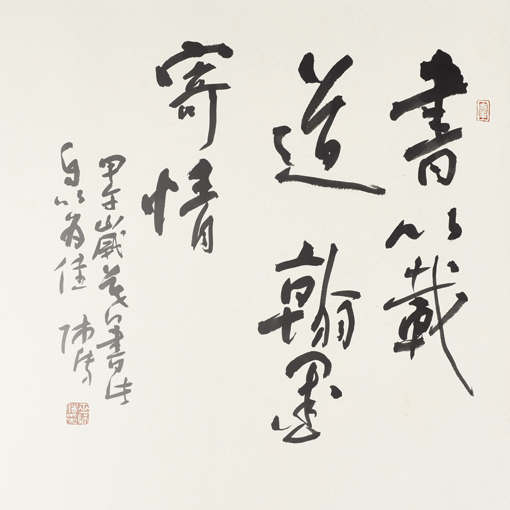 書以載
道翰墨
寄情
甲午歲書此
自以為佳